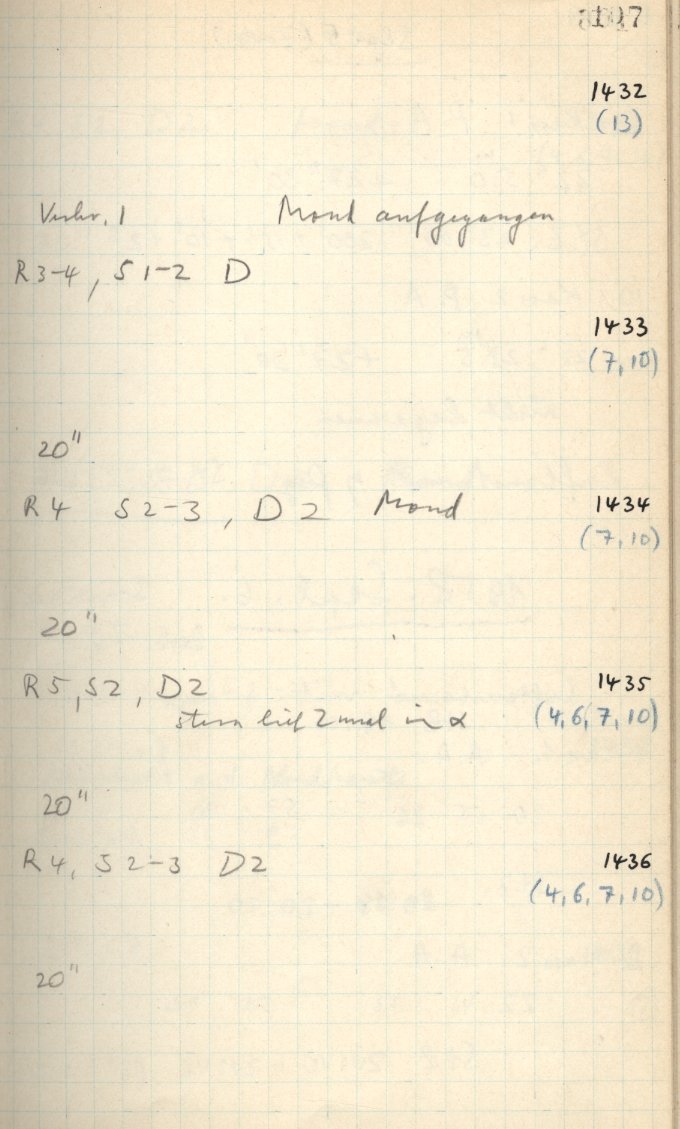 1432
(13)
Mond aufgegangen
R3-4, S1-2 D
1433
(7,10)
20"
R4 S2-3, D2 Mond 1434
(7,10)
20"
R5, S2, D2 1435
stern lief 2 mal in α (4,6,7,10)
20"
R4, S2-3 D2 1436
(4,6,7,10)
20"